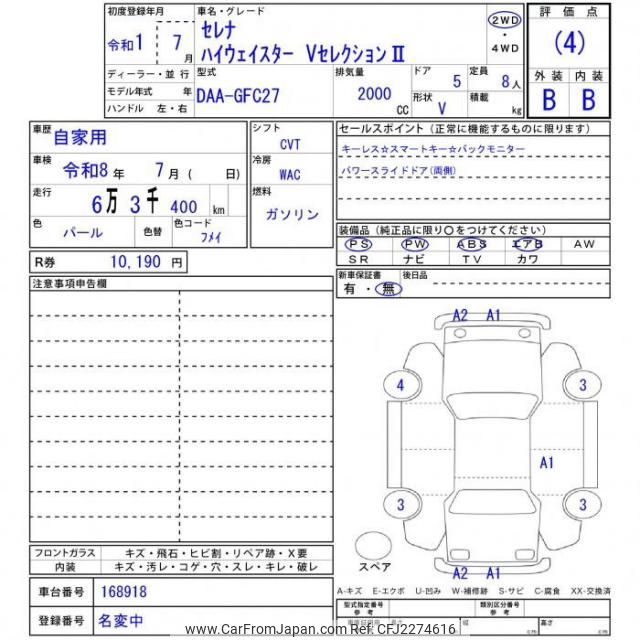 初度登録年月
令和1 7月
車名・グレード
セレナ
ハイウェイスター Vセレクション Ⅱ
2WD
・
4WD
評価点
(4)
外装 内装
B B
ディーラー・並行
モデル年式 年
ハンドル 左・右
型式
DAA-GFC27
排気量
2000 CC
ドア 5
定員 8人
形状 V
積載 kg
車歴 自家用
車検 令和8年 7月 ( 日)
走行 6万 3千 400 km
色 パール
色替
色コード フメイ
R券 10,190 円
シフト
CVT
冷房
WAC
燃料
ガソリン
セールスポイント (正常に機能するものに限ります)
キーレス☆スマートキー☆バックモニター
パワースライドドア(両側)
装備品 (純正品に限り〇をつけてください)
PS PW ABS エアB AW
SR ナビ TV カワ
新車保証書
有・無
後日品
注意事項申告欄
A2 A1
4 3
A1
3 3
スペア
A2 A1
フロントガラス キズ・飛石・ヒビ割・リペア跡・X要
内装 キズ・汚レ・コゲ・穴・スレ・キレ・破レ
A-キズ E-エクボ U-凹み W-補修跡 S-サビ C-腐食 XX-交換済
車台番号 168918
登録番号 名変中
型式指定番号
参考
類別区分番号
参考
高さ
www.CarFromJapan.com Ref:CFJ2274616